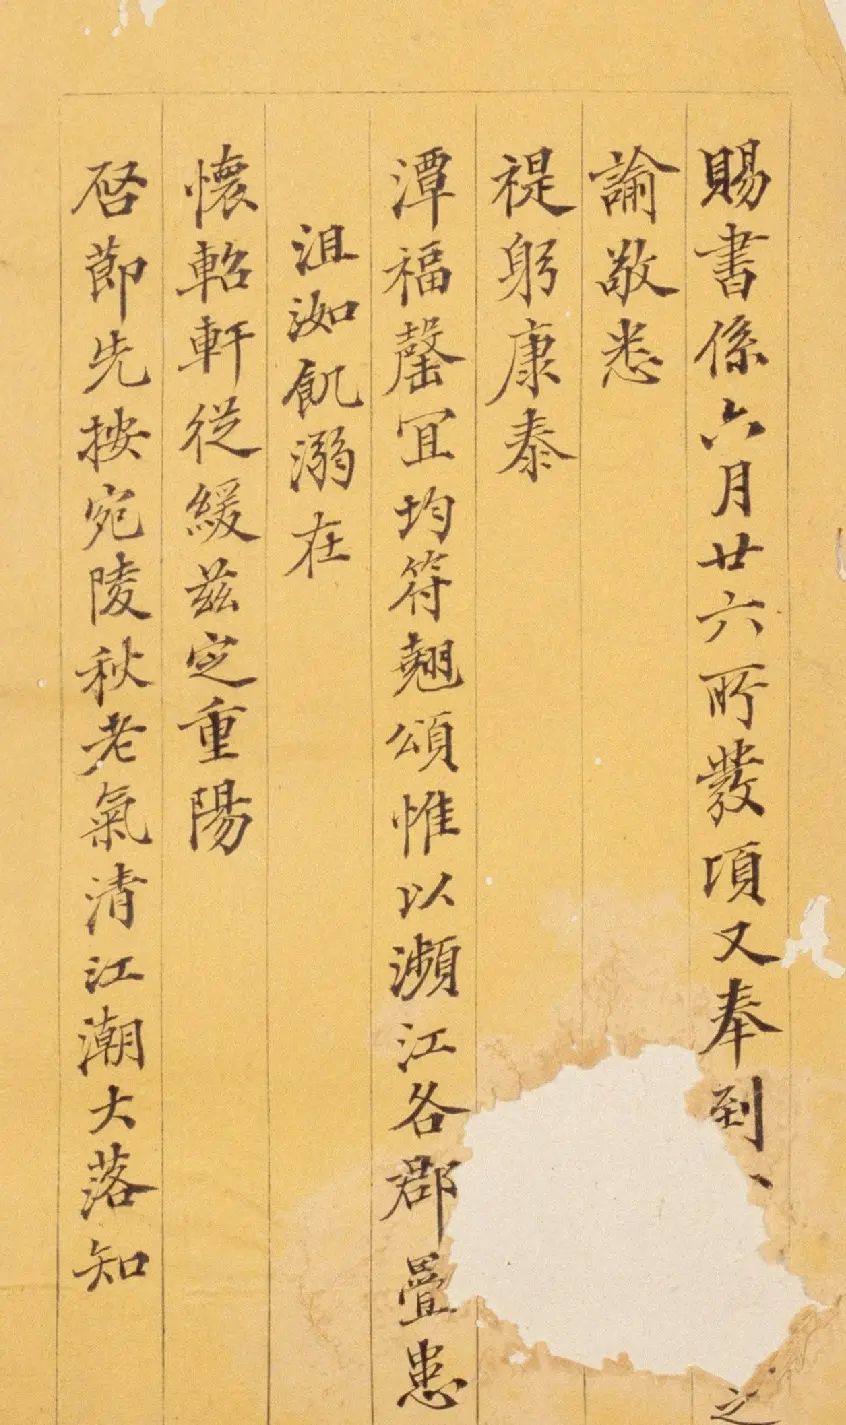 賜書係六月廿六所發頃又奉到之
諭敬悉
禔躬康泰
潭福罄冝均符翹頌惟以瀕江各郡疊患
沮洳飢溺在
懷軺軒從緩兹定重陽
启節先按宛陵秋老氣清江潮大落知